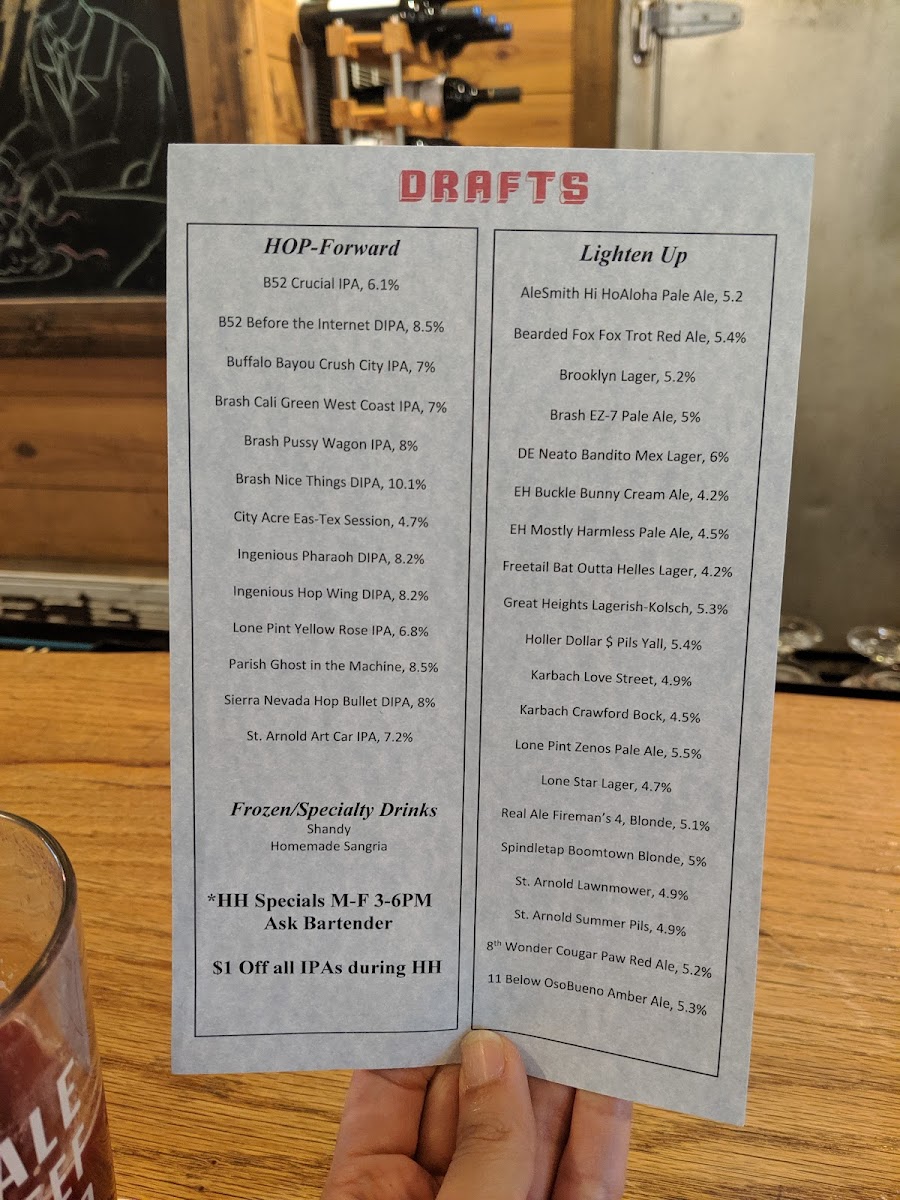 DRAFTS
HOP-Forward
B52 Crucial IPA, 6.1%
B52 Before the Internet DIPA, 8.5%
Buffalo Bayou Crush City IPA, 7%
Brash Cali Green West Coast IPA, 7%
Brash Pussy Wagon IPA, 8%
Brash Nice Things DIPA, 10.1%
City Acre Eas-Tex Session, 4.7%
Ingenious Pharaoh DIPA, 8.2%
Ingenious Hop Wing DIPA, 8.2%
Lone Pint Yellow Rose IPA, 6.8%
Parish Ghost in the Machine, 8.5%
Sierra Nevada Hop Bullet DIPA, 8%
St. Arnold Art Car IPA, 7.2%
Frozen/Specialty Drinks
Shandy
Homemade Sangria
*HH Specials M-F 3-6PM
Ask Bartender
$1 Off all IPAs during HH
Lighten Up
AleSmith Hi HoAloha Pale Ale, 5.2
Bearded Fox Fox Trot Red Ale, 5.4%
Brooklyn Lager, 5.2%
Brash EZ-7 Pale Ale, 5%
DE Neato Bandito Mex Lager, 6%
EH Buckle Bunny Cream Ale, 4.2%
EH Mostly Harmless Pale Ale, 4.5%
Freetail Bat Outta Helles Lager, 4.2%
Great Heights Lagerish-Kolsch, 5.3%
Holler Dollar $ Pils Yall, 5.4%
Karbach Love Street, 4.9%
Karbach Crawford Bock, 4.5%
Lone Pint Zenos Pale Ale, 5.5%
Lone Star Lager, 4.7%
Real Ale Fireman's 4, Blonde, 5.1%
Spindletap Boomtown Blonde, 5%
St. Arnold Lawnmower, 4.9%
St. Arnold Summer Pils, 4.9%
8th Wonder Cougar Paw Red Ale, 5.2%
11 Below OsoBueno Amber Ale, 5.3%
ALE